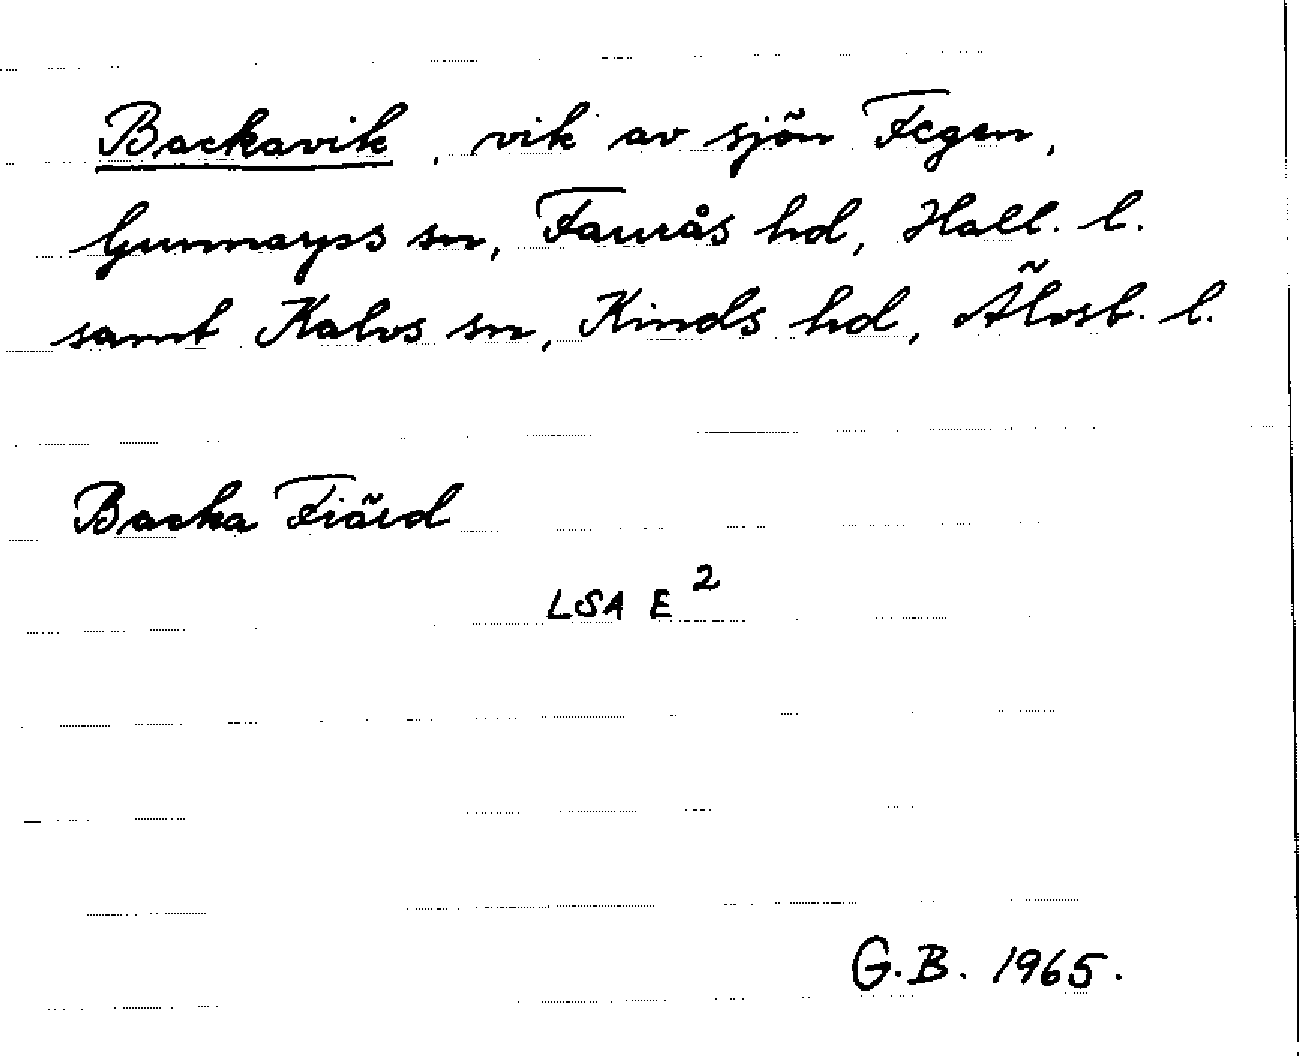 Backavik, vik av sjön Fegen,
Gunnarps sn, Faurås hd, Hall. l.
samt Kalvs sn, Kinds hd, Älvsb. l.
Backa Fiärd
LSA E²
G.B. 1965.